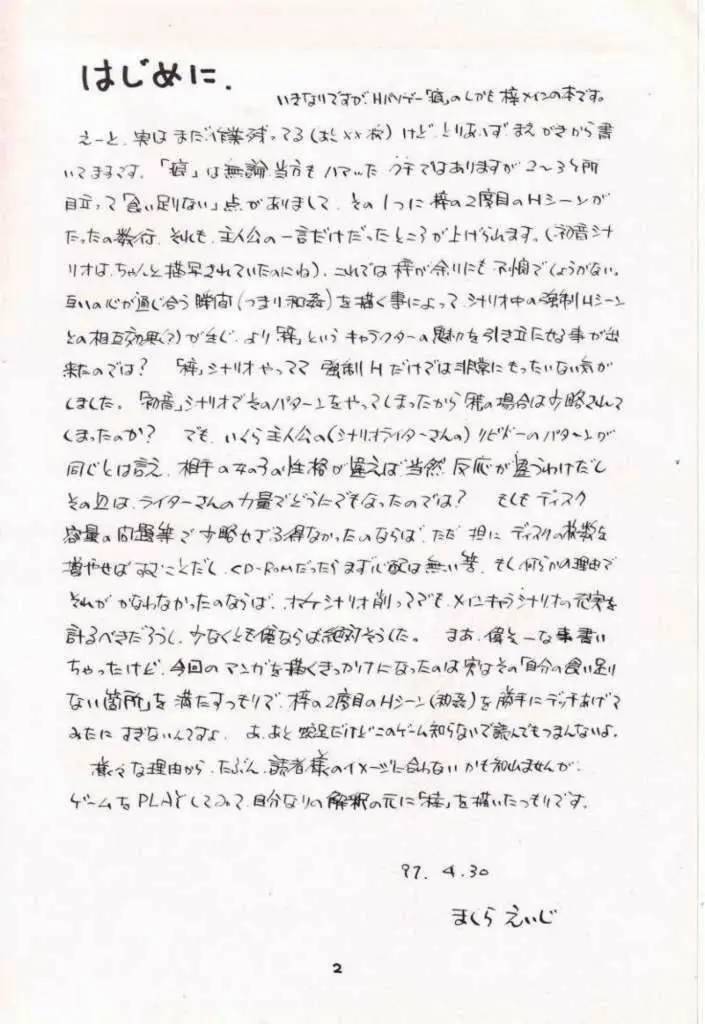 はじめに.
いきなりですが、Hパソゲー「痕」のしかも梓メインの本です。
えーと、実はまだ作業残ってる(あと××枚)けど、とりあえずまえがきから書
いてますです。「痕」は無論当方もハマったクチではありますが2〜3ヶ所
目立って「食い足りない」点がありまして、その1つに梓の2度目のHシーンが
たったの数行、それも、主人公の一言だけだったところが上げられます。(初音シナ
リオは、ちゃんと描写されていたのにね)、これでは梓が余りにも不憫でしょうがない。
互いの心が通じ合う瞬間(つまり和姦)を描く事によって、シナリオ中の強制Hシーン
との相互効果(?)が生じ、より「梓」というキャラクターの魅力を引き立たせる事が出
来たのでは? 「梓」シナリオやってて強制Hだけでは非常にもったいない気が
しました。「初音」シナリオでそのパターンをやってしまったから梓の場合は省略されて
しまったのか? でも、いくら主人公の(シナリオライターさんの)リビドーのパターンが
同じとは言え、相手の女の子の性格が違えば当然、反応が違うわけだし
その辺は、ライターさんの力量でどうにでもなったのでは? もしもディスク
容量の問題等で省略せざる得なかったのならば、ただ単にディスクの枚数を
増やせばすむことだし、CD-ROMだったらまず心配は無い筈、もし何らかの理由で
それがかなわなかったのならば、オマケシナリオ削ってでも、メインキャラシナリオの充実を
計るべきだろうし、少なくとも俺ならば絶対そうした。 まあ、偉そーな事書い
ちゃったけど、今回のマンガを描くきっかけになったのは実はその「自分の食い足り
ない箇所」を満たすつもりで、梓の2度目のHシーン(和姦)を勝手にデッチあげて
みたにすぎないんですよ、あ、あと蛇足だけどこのゲーム知らないで読んでもつまんないよ。
様々な理由から、たぶん、読者様のイメージに合わないかも知れませんが、
ゲームをPLAYしてみて、自分なりの解釈の元に「梓」を描いたつもりです。
97. 4.30
まくら えいじ
2